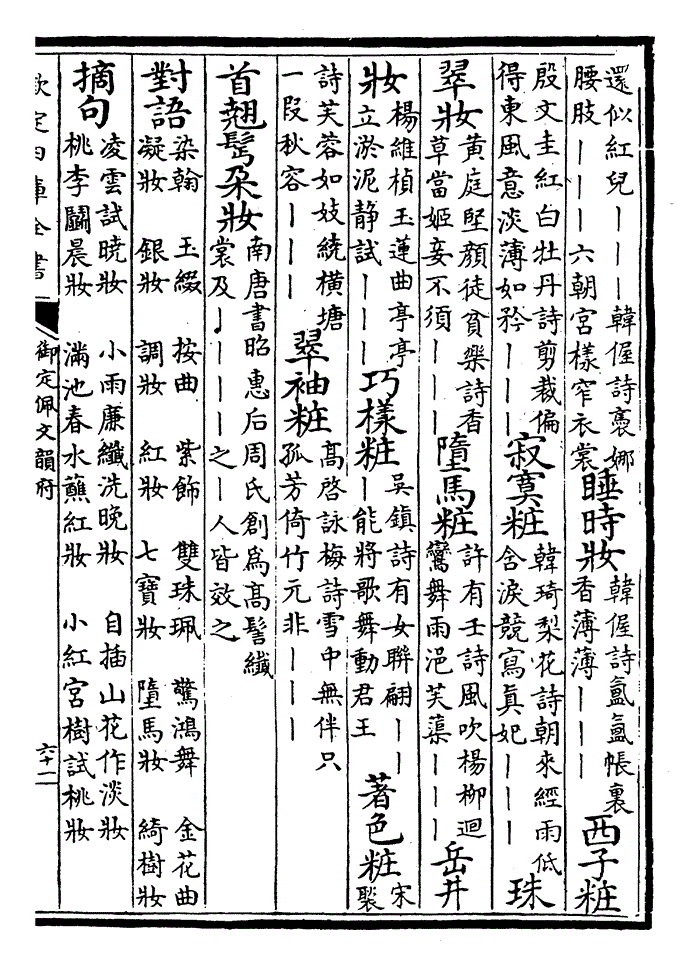 還似紅兒｜｜｜韓偓詩褭娜
腰肢｜｜｜六朝宮樣窄衣裳
睡時妝
韓偓詩氳氳帳裏
香薄薄｜｜｜
西子粧
殷文圭紅白牡丹詩剪裁偏
得東風意淡薄如矜｜｜｜
寂寞粧
韓琦梨花詩朝來經雨低
含淚競寫真妃｜｜｜
珠
翠妝
黃庭堅顔徒貧樂詩香
草當姬妾不須｜｜｜
墮馬粧
許有壬詩風吹楊柳迴
鸞舞雨浥芙蕖｜｜｜
岳井
妝
楊維楨玉蓮曲亭亭
立淤泥静試｜｜｜
巧様粧
吳鎮詩有女聯翩｜｜
｜能將歌舞動君王
著色粧
宋
褧
詩芙蓉如妓繞橫塘
一段秋容｜｜｜
翠袖粧
高啓詠梅詩雪中無伴只
孤芳倚竹元非｜｜｜
首翹鬢朶妝
南唐書昭惠后周氏創為高髻纎
裳及｜｜｜｜之｜人皆效之
對語
染翰 玉綴 按曲 紫飾 雙珠珮 驚鴻舞 金花曲
凝妝 銀妝 調妝 紅妝 七寶妝 墮馬妝 綺樹妝
摘句
凌雲試曉妝 小雨廉纎洗晚妝 自插山花作淡妝
桃李鬭晨妝 滿池春水蘸紅妝 小紅宮樹試桃妝
欽定四庫全書
御定佩文韻府
六十二